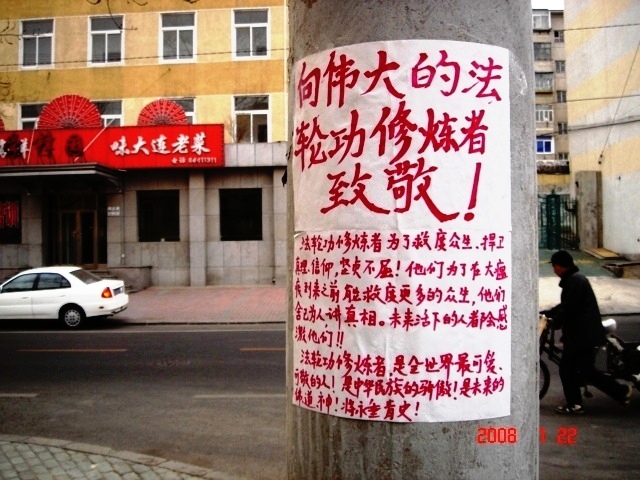 味大连老菜
84411311
向伟大的法
轮功修炼者
致敬！
法轮功修炼者为了救度众生、捍卫
真理、信仰，坚贞不屈！他们为了在大瘟
疫到来之前能救度更多的众生，他们
舍己为人，讲真相。未来活下的人都会感
激他们！！
法轮功修炼者，是全世界最可爱、
可敬的人！是中华民族的骄傲！是未来的
佛、道、神！将永垂青史！
2008 1 22